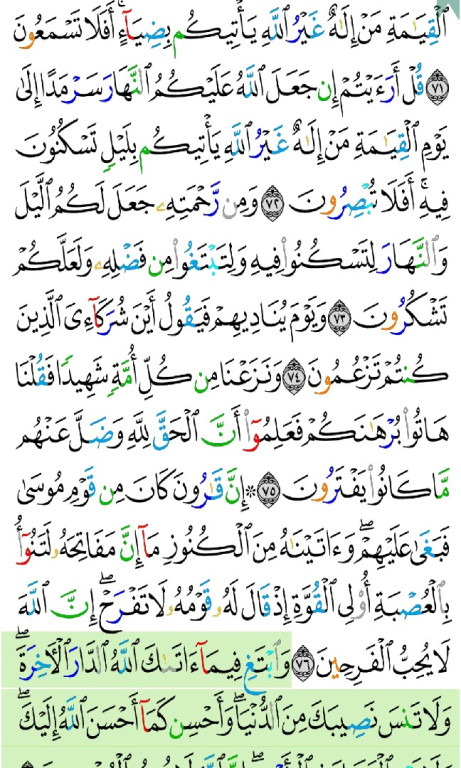 ٱلْقِيَٰمَةِ مَنْ إِلَٰهٌ غَيْرُ ٱللَّهِ يَأْتِيكُم بِضِيَآءٍ ۖ أَفَلَا تَسْمَعُونَ
٧١ قُلْ أَرَءَيْتُمْ إِن جَعَلَ ٱللَّهُ عَلَيْكُمُ ٱلنَّهَارَ سَرْمَدًا إِلَىٰ
يَوْمِ ٱلْقِيَٰمَةِ مَنْ إِلَٰهٌ غَيْرُ ٱللَّهِ يَأْتِيكُم بِلَيْلٍ تَسْكُنُونَ
فِيهِ ۖ أَفَلَا تُبْصِرُونَ ٧٢ وَمِن رَّحْمَتِهِۦ جَعَلَ لَكُمُ ٱلَّيْلَ
وَٱلنَّهَارَ لِتَسْكُنُوا۟ فِيهِ وَلِتَبْتَغُوا۟ مِن فَضْلِهِۦ وَلَعَلَّكُمْ
تَشْكُرُونَ ٧٣ وَيَوْمَ يُنَادِيهِمْ فَيَقُولُ أَيْنَ شُرَكَآءِىَ ٱلَّذِينَ
كُنتُمْ تَزْعُمُونَ ٧٤ وَنَزَعْنَا مِن كُلِّ أُمَّةٍ شَهِيدًا فَقُلْنَا
هَاتُوا۟ بُرْهَٰنَكُمْ فَعَلِمُوٓا۟ أَنَّ ٱلْحَقَّ لِلَّهِ وَضَلَّ عَنْهُم
مَّا كَانُوا۟ يَفْتَرُونَ ٧٥ ۞ إِنَّ قَٰرُونَ كَانَ مِن قَوْمِ مُوسَىٰ
فَبَغَىٰ عَلَيْهِمْ ۖ وَءَاتَيْنَٰهُ مِنَ ٱلْكُنُوزِ مَآ إِنَّ مَفَاتِحَهُۥ لَتَنُوٓأُ
بِٱلْعُصْبَةِ أُو۟لِى ٱلْقُوَّةِ إِذْ قَالَ لَهُۥ قَوْمُهُۥ لَا تَفْرَحْ ۖ إِنَّ ٱللَّهَ
لَا يُحِبُّ ٱلْفَرِحِينَ ٧٦ وَٱبْتَغِ فِيمَآ ءَاتَىٰكَ ٱللَّهُ ٱلدَّارَ ٱلْءَاخِرَةَ ۖ
وَلَا تَنسَ نَصِيبَكَ مِنَ ٱلدُّنْيَا ۖ وَأَحْسِن كَمَآ أَحْسَنَ ٱللَّهُ إِلَيْكَ ۖ